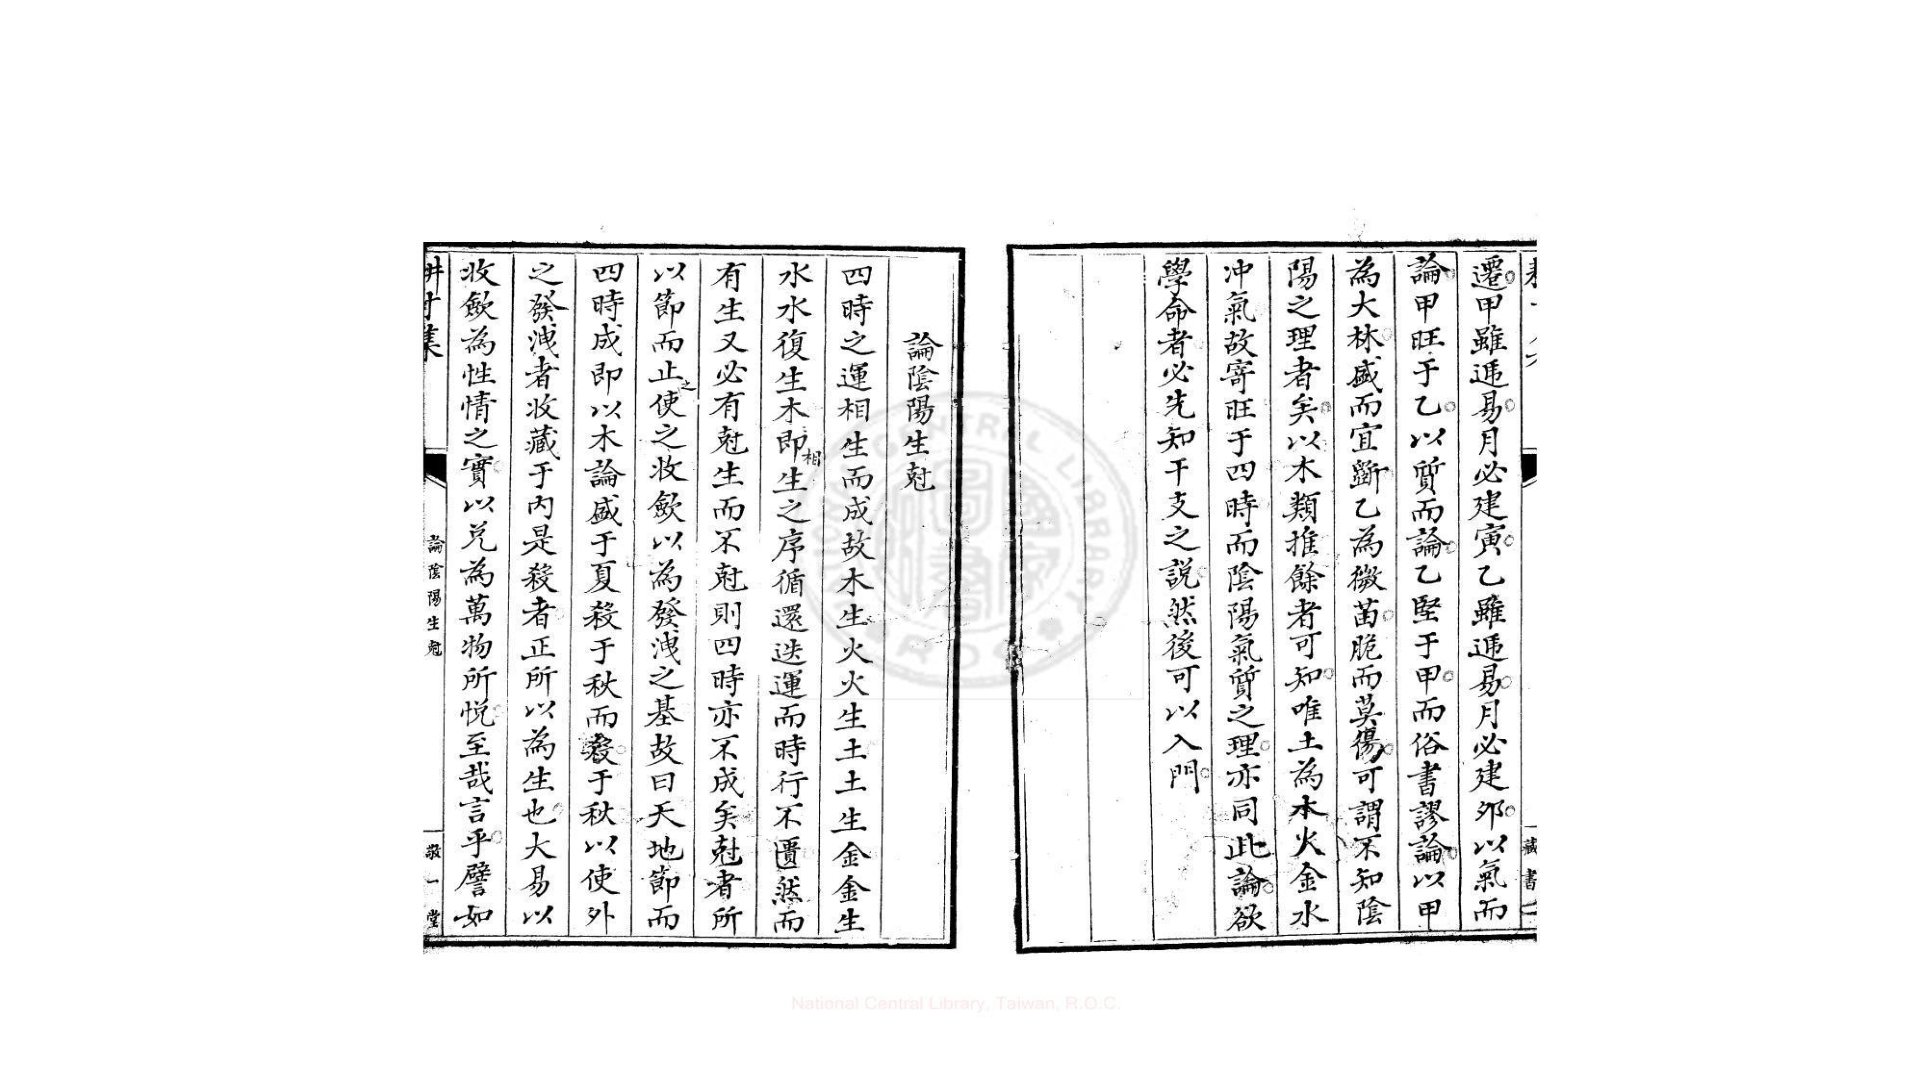 遷甲雖遞易月必建寅乙雖遞易月必建夘以氣而
論甲旺于乙以質而論乙堅于甲而俗書謬論以甲
為大林盛而宜斵乙為微苗脆而莫傷可謂不知陰
陽之理者矣以木類推餘者可知唯土為木火金水
冲氣故寄旺于四時而陰陽氣質之理亦同此論欲
學命者必先知干支之説然後可以入門
藏書
論陰陽生尅
四時之運相生而成故木生火火生土土生金金生
水水復生木即相生之序循還迭運而時行不匱然而
有生又必有尅生而不尅則四時亦不成矣尅者所
以節而止之使之收歛以為發洩之基故曰天地節而
四時成即以木論盛于夏殺于秋而殺于秋以使外
之發洩者收藏于内是殺者正所以為生也大易以
收歛為性情之實以兑為萬物所悦至哉言乎譬如
論陰陽生尅
敬一堂
National Central Library, Taiwan, R.O.C.